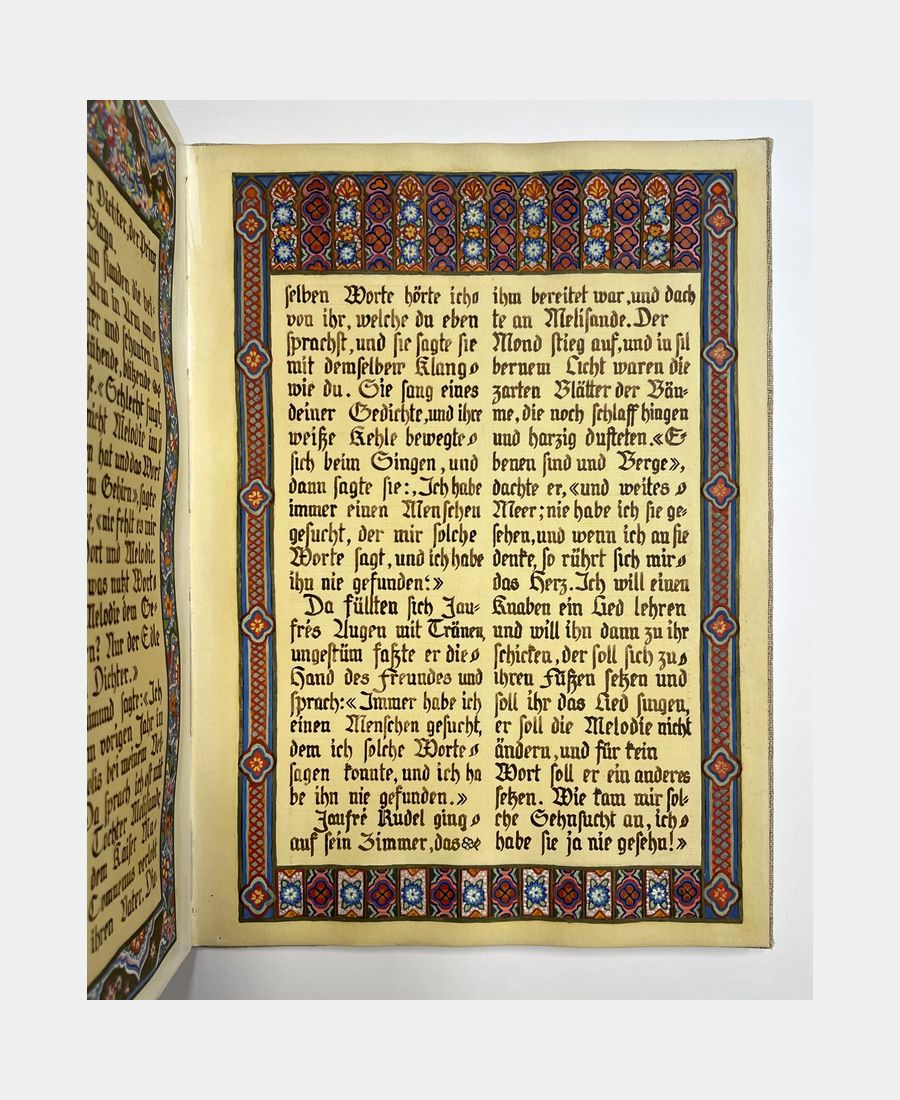 er Dichter, der Prinz
Blaya.
en stunden die bei-
Arm in Arm am
ster und schauten in
blühende, blühende
se. «Schlecht singt,
nicht Melodie im
n hat und das Wort
m Gehirn», sagte
é, «mir fehlt es mir
Wort und Melodie.
was nutzt Wort
Melodie dem Ge-
n? Nur der Eitle
Dichter.»
mund sagte: «Ich
m vorigen Jahr in
olis bei meinem Vet-
Da sprach ich oft mit
Tochter Melisande
dem Kaiser Ma-
Comnenus verlobt
ihren Vater. Da
selben Worte hörte ich
von ihr, welche du eben
sprachst, und sie sagte sie
mit demselben Klang
wie du. Sie sang eines
deiner Gedichte, und ihre
weiße Kehle bewegte
sich beim Singen, und
dann sagte sie: ‚Ich habe
immer einen Menschen
gesucht, der mir solche
Worte sagt, und ich habe
ihn nie gefunden‘.»
Da füllten sich Jau-
frés Augen mit Tränen,
ungestüm faßte er die
Hand des Freundes und
sprach: «Immer habe ich
einen Menschen gesucht,
dem ich solche Worte
sagen konnte, und ich ha
be ihn nie gefunden.»
Jaufré Rudel ging
auf sein Zimmer, das
ihm bereitet war, und dach
te an Melisande. Der
Mond stieg auf, und in sil
bernem Licht waren die
zarten Blätter der Bäu-
me, die noch schlaff hingen
und harzig dufteten. «E-
benen sind und Berge»,
dachte er, «und weites
Meer; nie habe ich sie ge-
sehen, und wenn ich an sie
denke, so rührt sich mir
das Herz. Ich will einen
Knaben ein Lied lehren
und will ihn dann zu ihr
schicken, der soll sich zu
ihren Füßen setzen und
soll ihr das Lied singen,
er soll die Melodie nicht
ändern, und für kein
Wort soll er ein anderes
setzen. Wie kam mir sol-
che Sehnsucht an, ich
habe sie ja nie gesehn!»